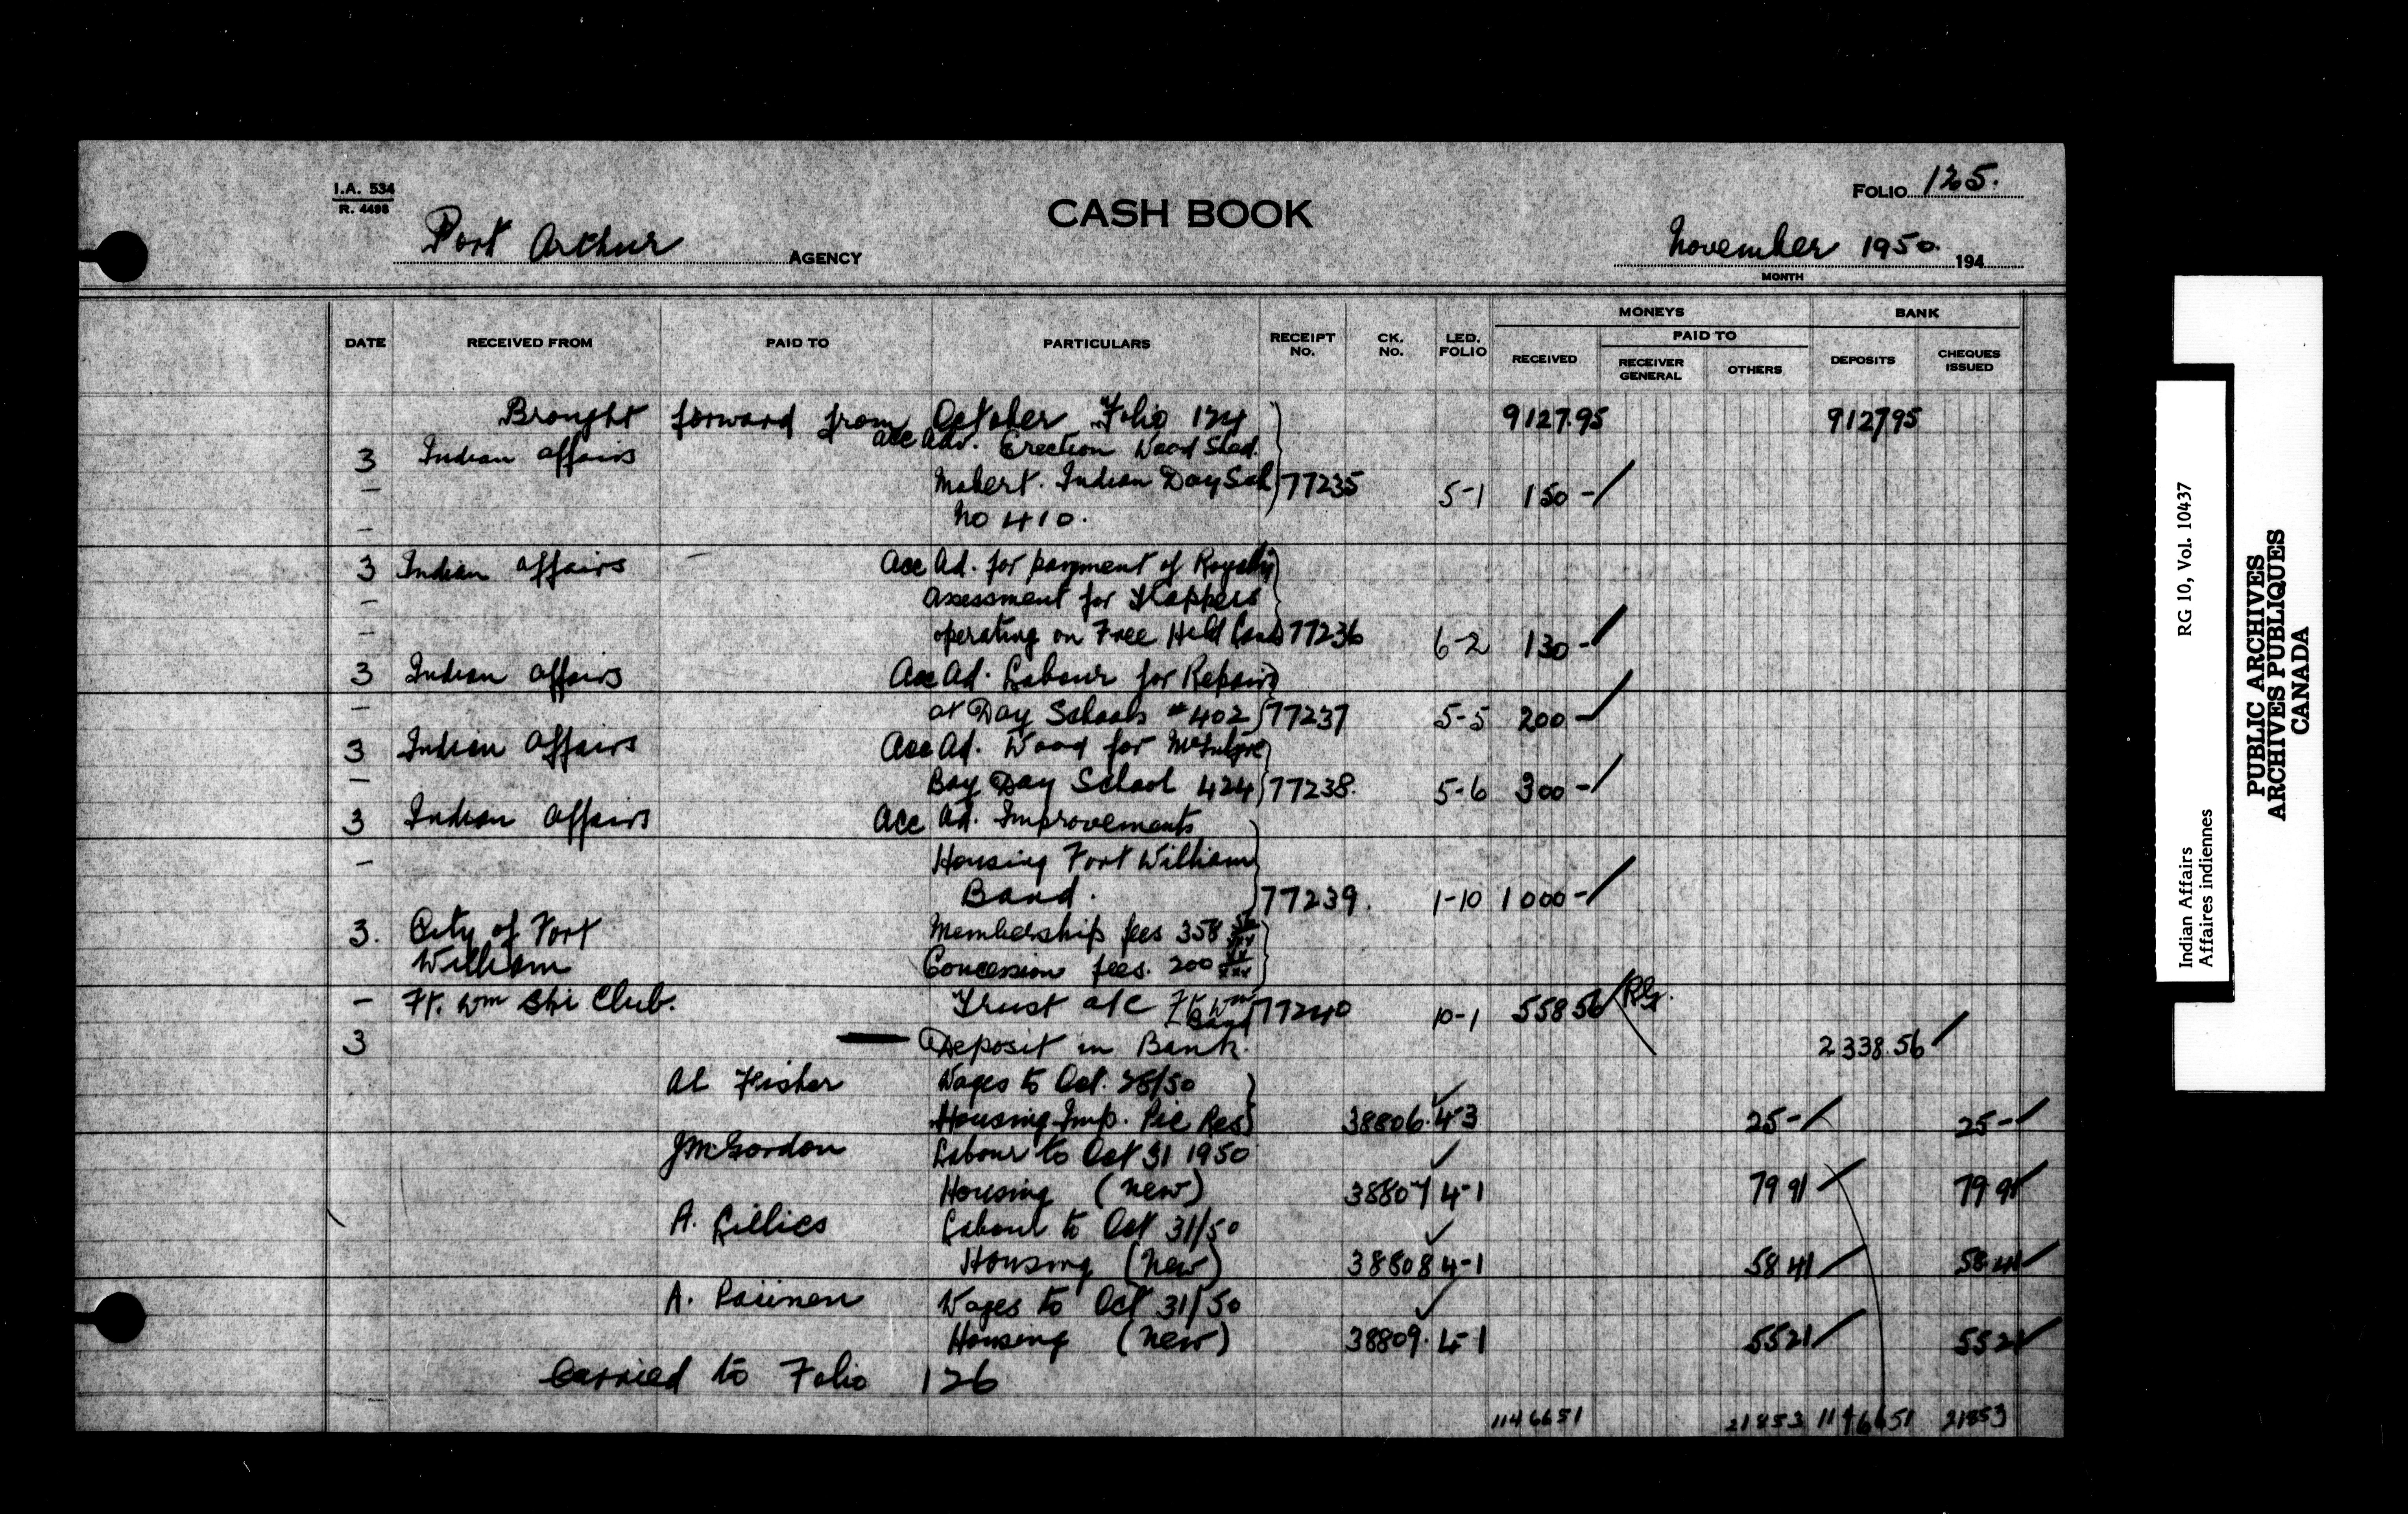 I.A. 534
R. 4498
CASH BOOK
FOLIO 125.
Port Arthur AGENCY
November 1950. 194
MONTH
MONEYS BANK
DATE RECEIVED FROM PAID TO PARTICULARS RECEIPT NO. CK. NO. LED. FOLIO RECEIVED PAID TO RECEIVER GENERAL OTHERS DEPOSITS CHEQUES ISSUED
Brought forward from October Folio 124 9127.95 912795
3 Indian Affairs Acc Adv. Erection Wood Shed.
- Mobert. Indian Day Sch 77235 5-1 150 -
- No 410.
3 Indian Affairs - Acc Ad. for payment of Royalty
- Assessment for Trappers
- operating on Free Held Lands 77236 6-2 130 -
3 Indian Affairs Acc Ad. Labour for Repairs
- at Day Schools #402 77237 5-5 200 -
3 Indian Affairs Acc Ad. Wood for McIntyre
- Bay Day School 424 77238. 5-6 300 -
3 Indian Affairs Acc Ad. Improvements
- Housing Fort William
Band. 77239. 1-10 1000 -
3. City of Fort Membership fees 358 56
William Concession fees. 200 xx
- Ft. Wm Ski Club. Trust a/c Ft Wm Band 77240 10-1 558 56 RG.
3 Deposit in Bank. 2338.56
Al Fisher Wages to Oct. 28/50
Housing Imp. Pic Res 38806. 4-3 25 - 25 -
J McGordon Labour to Oct 31 1950
Housing (new) 38807 4-1 79 91 79 91
A. Gillies Labour to Oct 31/50
Housing (New) 38808 4-1 58 41 58 41
A. Paiinen Wages to Oct 31/50
Housing (New) 38809. 4-1 55 21 55 21
Carried to Folio 126
1146651 21853 1146651 21853
Indian Affairs RG 10, Vol. 10437
Affaires indiennes
PUBLIC ARCHIVES
ARCHIVES PUBLIQUES
CANADA